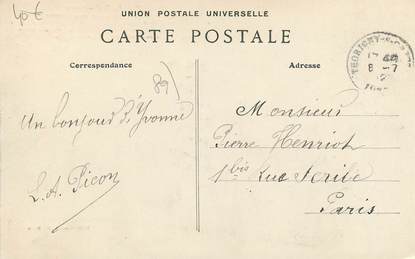 40€
UNION POSTALE UNIVERSELLE
CARTE POSTALE
Correspondance
Adresse
THORIGNY-S
8 - 7
89)
Un bonjour d'Yvonne
L. A. Picon
Monsieur
Pierre Henriot
1 bis Rue Scribe
Paris